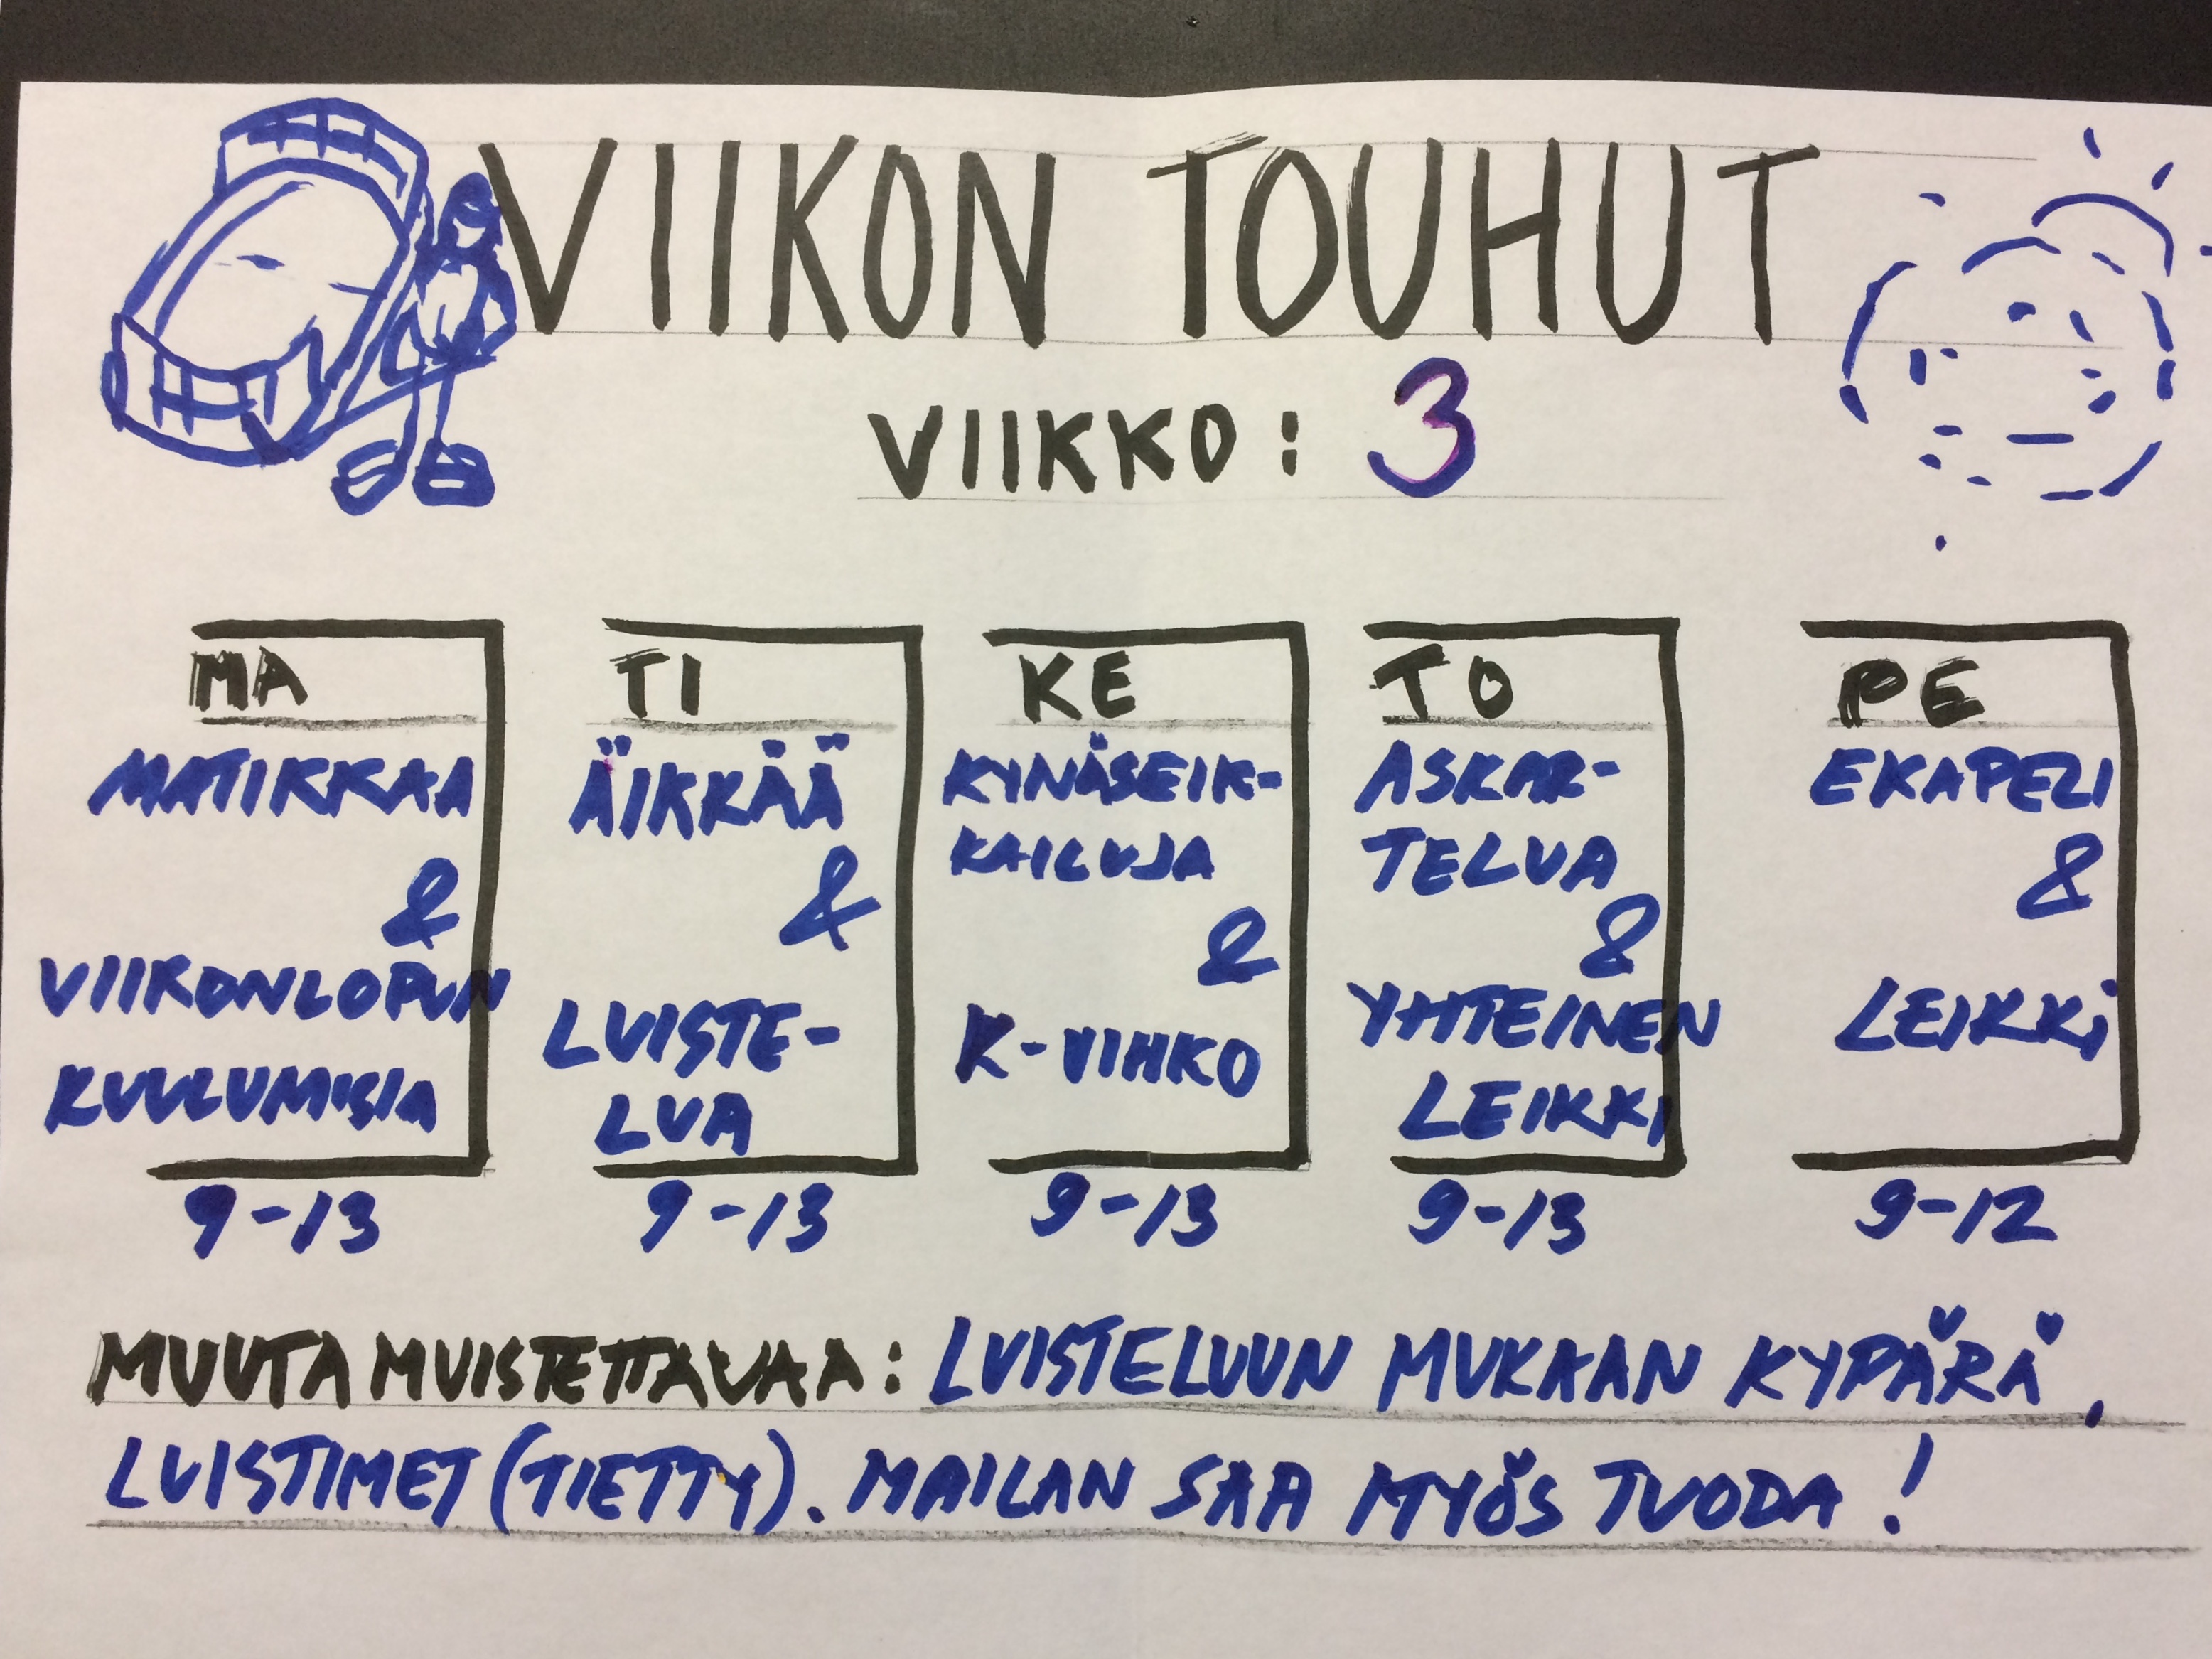 VIIKON TOUHUT
VIIKKO: 3
MA
MATIKKAA
&
VIIKONLOPUN
KUULUMISIA
9-13
TI
ÄIKKÄÄ
&
LUISTE-
LUA
9-13
KE
KYNÄSEIK-
KAILUJA
&
K-VIHKO
9-13
TO
ASKAR-
TELUA
&
YHTEINEN
LEIKKI
9-13
PE
EKAPELI
&
LEIKKI
9-12
MUUTA MUISTETTAVAA: LUISTELUUN MUKAAN KYPÄRÄ,
LUISTIMET (TIETTY). MAILAN SAA MYÖS TUODA!